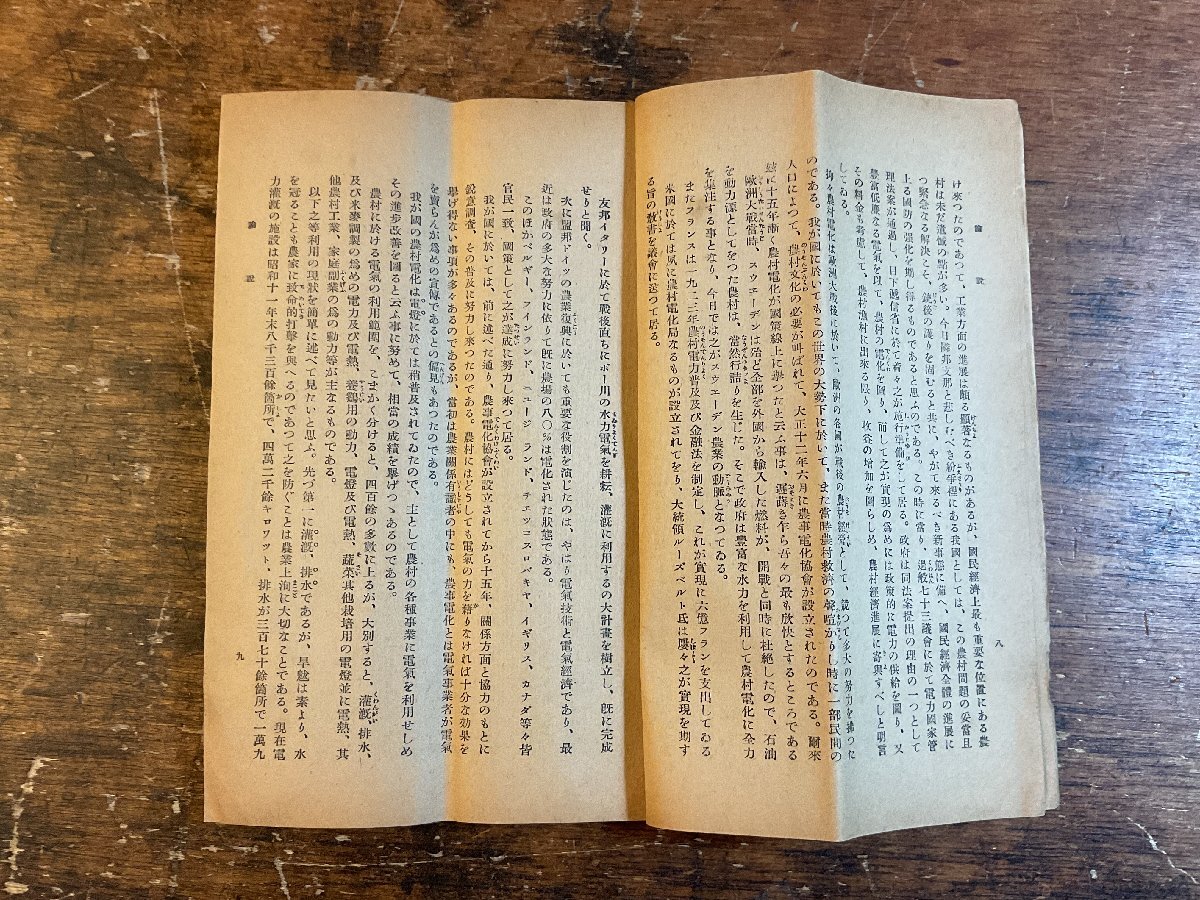 論說
八
け來つたのであつて、工業方面の進展は頗る顯著なるものがあるが、國民經濟上最も重要な位置にある農
村は未だ遺憾の點が多い。今日隣邦支那と悲しむべき紛爭裡にある我國としては、この農村問題の妥當且
つ緊急なる解決こそ、銃後の護りを固むると共に、やがて來るべき新事態に備へ、國民經濟全體の進展に
上る國防の强化を期し得るものであると思ふのである。この時に當り、過般七十三議會に於て電力國家管
理法案が通過し、目下遞信省に於て着々之が施行準備をして居る。政府は同法案提出の理由の一つとして
豐富低廉なる電氣を以て、農村の電化を圖り、而して之が實現の爲めには政策的に電力の供給を圖り、又
その料金も考慮して、農村漁村に出來る限り、收益の增加を圖らしめ、農村經濟進展に寄與すべしと明言
してゐる。
抑々農村電化は歐洲大戰後に於いて、歐洲の各國が戰後の農村經營として、競つて多大の努力を拂つた
のである。我が國に於いてもこの世界の大勢下に於いて、また當時農村救濟の聲喧かりし時に一部民間の
人口によつて、農村文化の必要が叫ばれて、大正十二年六月に農事電化協會が設立されたのである。爾來
玆に十五年漸く農村電化が國策線上に夢つたと云ふ事は、遲蒔き乍ら吾々の最も欣快とするところである
歐洲大戰當時、スウエーデンは殆ど全部を外國から輸入した燃料が、開戰と同時に杜絕したので、石油
を動力源としてをつた農村は、當然行詰りを生じた。そこで政府は豐富な水力を利用して農村電化に全力
を集注する事となり、今日では之がスウエーデン農業の動脈となつてゐる。
またフランスは一九二三年農村電力普及及び金融法を制定し、これが實現に六億フランを支出してゐる
米國に於ては夙に農村電化局なるものが設立されてをり、大統領ルーズベルト氏は屢々之が實現を期す
る旨の敎書を議會に送つて居る。
友邦イタリーに於て戰後直ちにポー川の水力電氣を耕耘、灌漑に利用するの大計畫を樹立し、旣に完成
せりと聞く。
次に盟邦ドイツの農業復興に於いても重要な役割を演じたのは、やはり電氣技術と電氣經濟であり、最
近は政府の多大な努力に依りて旣に農場の八〇％は電化された狀態である。
このほかベルギー、フインランド、ニユージランド、チエツコスロバキヤ、イギリス、カナダ等々皆
官民一致、國策として之が達成に努力し來つて居る。
我が國に於いては、前に述べた通り、農事電化協會が設立されてから十五年、關係方面と協力のもとに
銳意調査、その普及に努力し來つたのである。農村にはどうしても電氣の力を藉りなければ十分な効果を
擧げ得ない事項が多々あるのであるが、當初は農業關係有識者の中にも、農事電化とは電氣事業者が電氣
を賣らんが爲めの宣傳であるとの偏見もあつたのである。
我が國の農村電化は電燈に於ては稍普及されてゐたので、主として農村の各種事業に電氣を利用せしめ
その進步改善を圖ると云ふ事に努めて、相當の成績を擧げつゝあるのである。
農村に於ける電氣の利用範圍を、こまかく分けると、四百餘の多數に上るが、大別すると、灌漑、排水、
及び米麥調製の爲めの電力及び電熱、養鷄用の動力、電燈及び電熱、蔬菜其他栽培用の電燈並に電熱、其
他農村工業、家庭副業の爲の動力等が主なるものである。
以下之等利用の現狀を簡單に述べて見たいと思ふ。先づ第一に灌漑、排水であるが、旱魃は素より、水
を冠ることも農家に致命的打擊を與へるのであつて之を防ぐことは農業上洵に大切なことである。現在電
力灌漑の施設は昭和十一年末八千三百餘箇所で、四萬二千餘キロワツト、排水が三百七十餘箇所で一萬九
論說
九